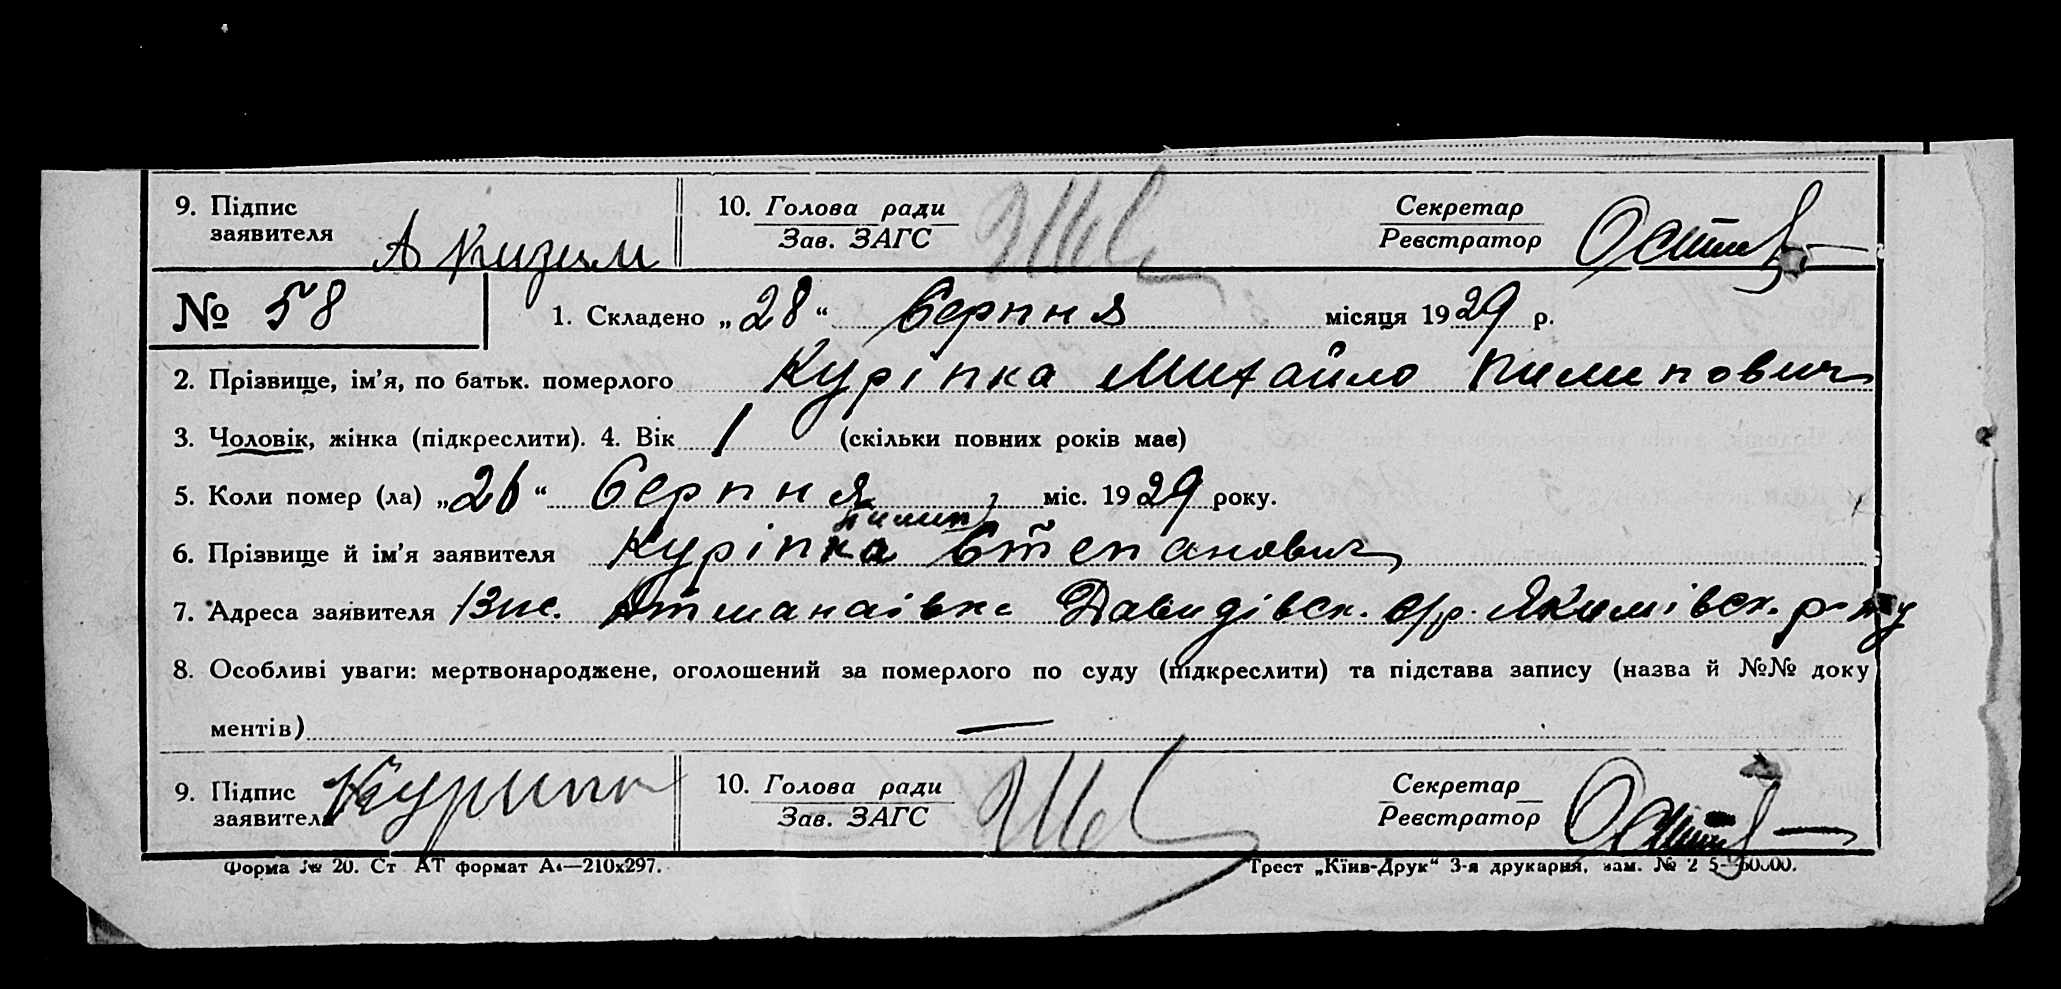 9. Підпис 10. Голова ради Секретар
заявителя А Кизим Зав. ЗАГС Реєстратор
№ 58 1. Складено „28“ Серпня місяця 1929 р.
2. Прізвище, ім’я, по батьк. померлого Куріпка Михайло Пилипович
3. Чоловік, жінка (підкреслити). 4. Вік 1 (скільки повних років має)
5. Коли помер (ла) „26“ Серпня міс. 1929 року.
Пилип
6. Прізвище й ім’я заявителя Куріпка Степанович
7. Адреса заявителя Вис. Атманаівка Давидівск. с/р. Якимівск. р-ну
8. Особливі уваги: мертвонароджене, оголошений за померлого по суду (підкреслити) та підстава запису (назва й №№ доку
ментів) —
9. Підпис 10. Голова ради Секретар
заявителя Зав. ЗАГС Реєстратор
Форма № 20. Ст АТ формат А4—210х297. Трест „Київ-Друк“ 3-я друкарня, зам. №